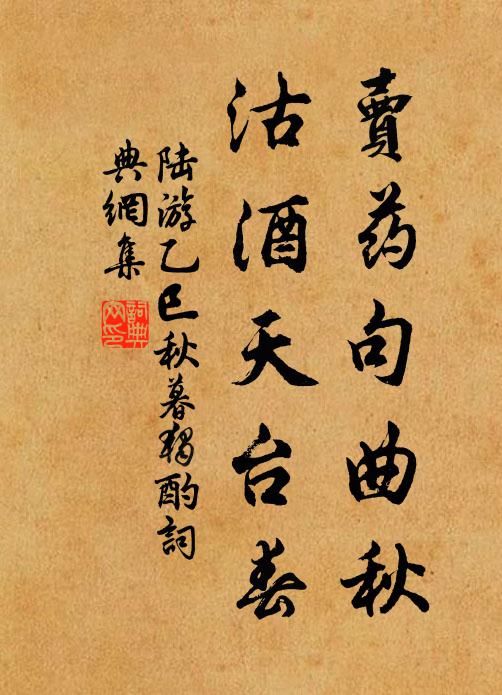 賣药句曲秋
沽酒天台春
陆游乙巳秋暮独酌詞
典網集
詞典
网印